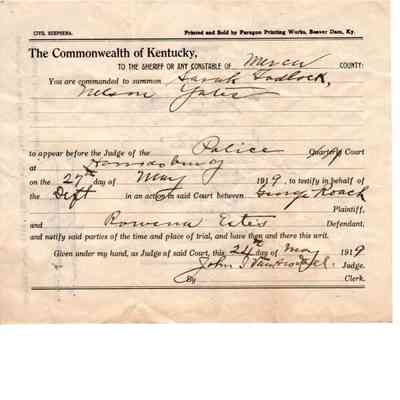 CIVIL SUBPŒNA. Printed and Sold by Paragon Printing Works, Beaver Dam, Ky.
The Commonwealth of Kentucky,
TO THE SHERIFF OR ANY CONSTABLE OF Mercer COUNTY:
You are commanded to summon Sarah Sadlock,
Nelson Yates
to appear before the Judge of the Police Quarterly Court
at Harrodsburg
on the 27th day of May 1919, to testify in behalf of
the Deft in an action in said Court between George Roach
Plaintiff,
and Rowena Estes Defendant,
and notify said parties of the time and place of trial, and have then and there this writ.
Given under my hand, as Judge of said Court, this 24th day of May 1919
John I. Judge.
By Clerk.